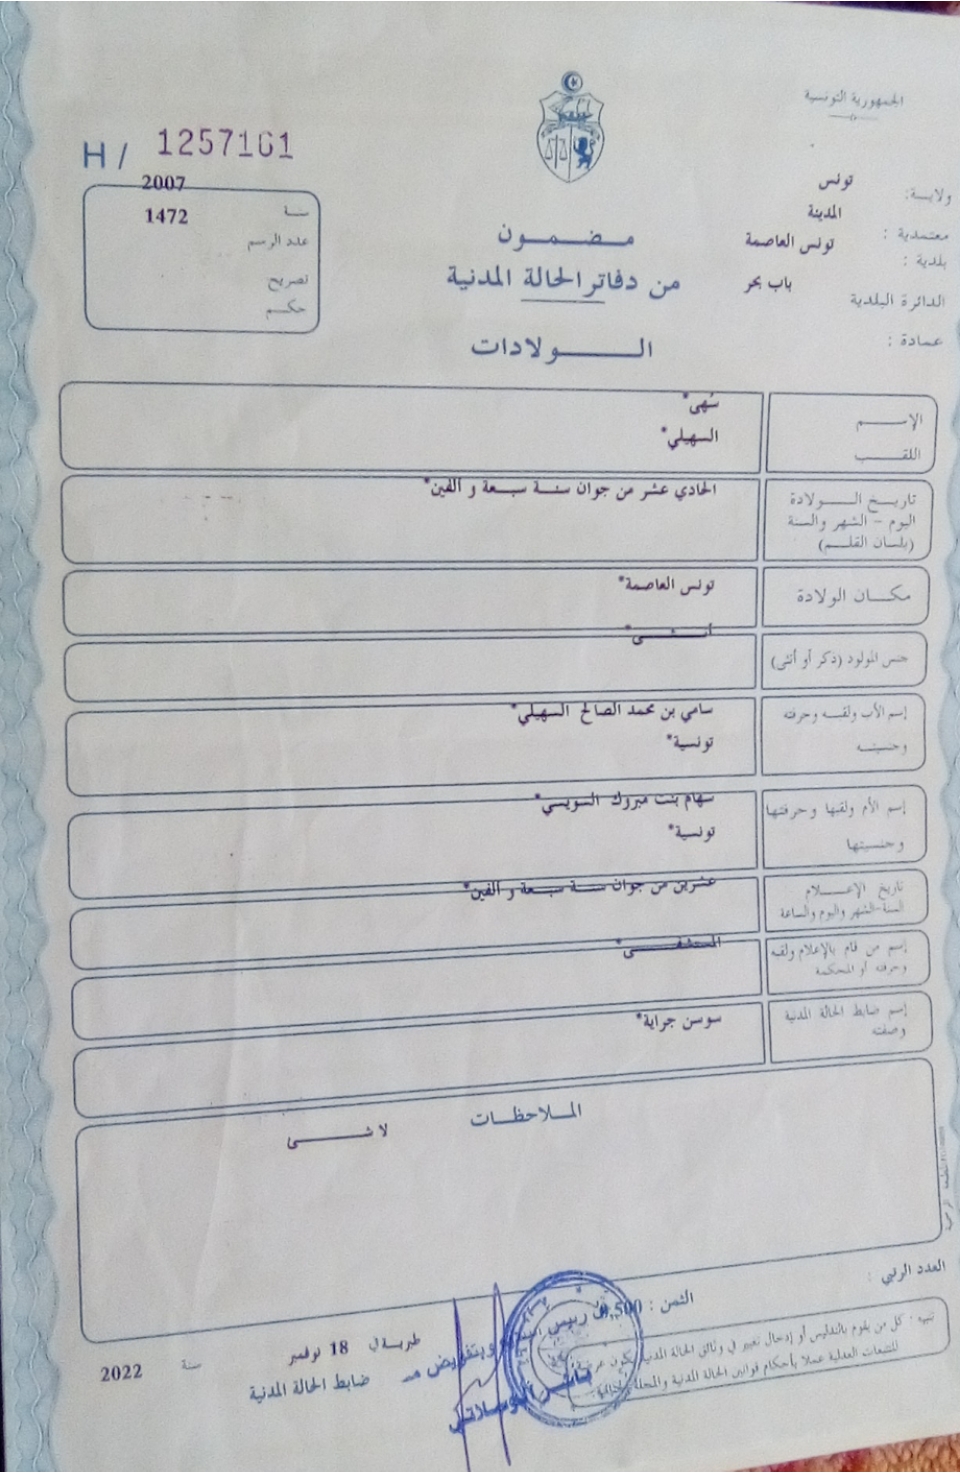 الجمهورية التونسية
H / 1257161
ولايـة: تونس
معتمدية : المدينة
بلدية : تونس العاصمة
الدائرة البلدية باب بحر
عمادة :
سنة 2007
عدد الرسم 1472
تصريح
حكم
مضمون
من دفاتر الحالة المدنية
الولادات
الإسم سُهى*
اللقب السهيلي*
تاريخ الولادة
اليوم - الشهر والسنة
(بلسان القلم)
الحادي عشر من جوان سنة سبعة و ألفين*
مكان الولادة تونس العاصمة*
جنس المولود (ذكر أو أنثى) أنثى*
إسم الأب ولقبه وحرفته سامي بن محمد الصالح السهيلي*
وجنسيته تونسية*
إسم الأم ولقبها وحرفتها سهام بنت مبروك السويسي*
وجنسيتها تونسية*
تاريخ الإعلام
السنة-الشهر واليوم والساعة
عشرين من جوان سنة سبعة و ألفين*
إسم من قام بالإعلام ولقبه
وحرفته أو المحكمة
المستشفى*
إسم ضابط الحالة المدنية
وصفته
سوسن جراية*
الملاحظات
لا شئ
العدد الرتبي :
الثمن : 0,500
تنبيه : كل من يقوم بالتدليس أو إدخال تغيير في وثائق الحالة المدنية يكون عرضة
للتتبعات العدلية عملا بأحكام قوانين الحالة المدنية والمجلة
طبربة في 18 نوفمبر سنة 2022
ضابط الحالة المدنية